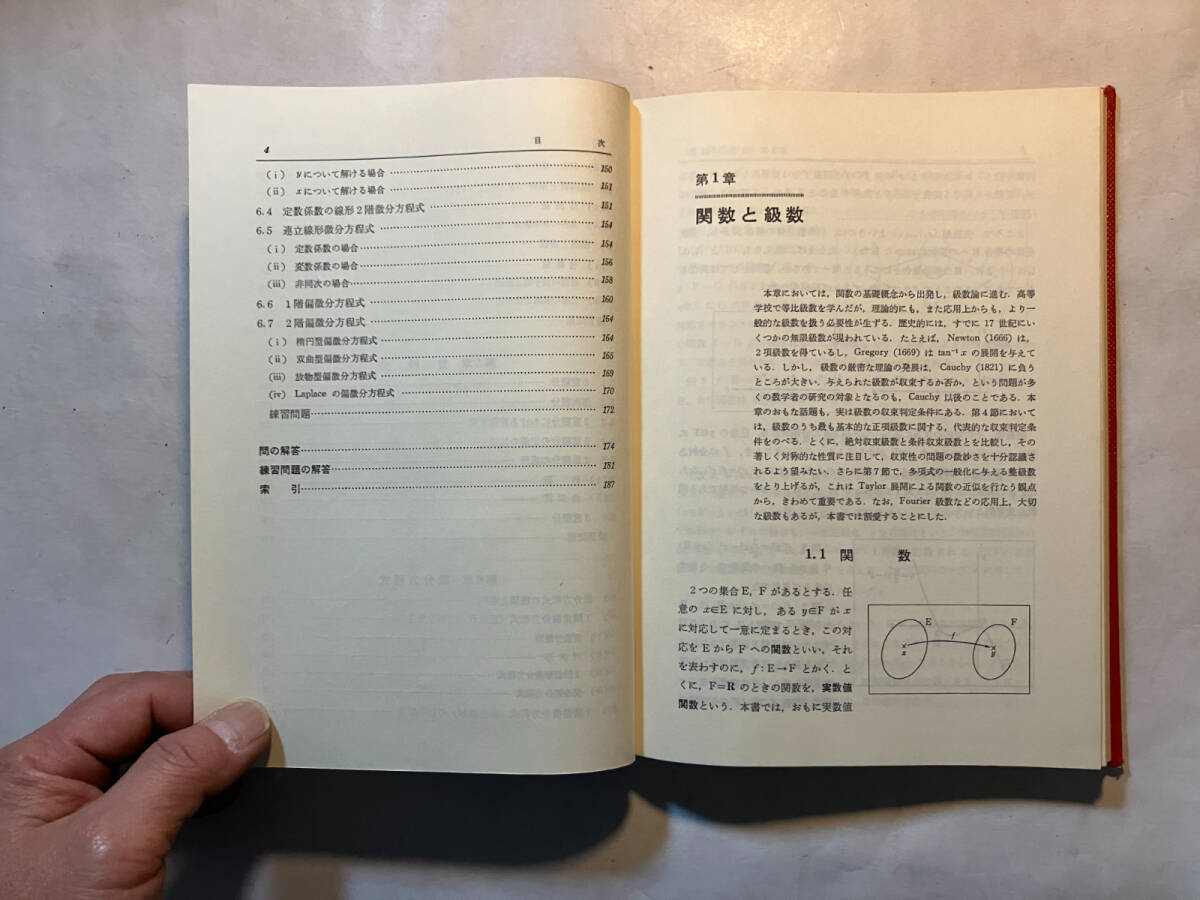 4 目 次
(i) yについて解ける場合 150
(ii) xについて解ける場合 151
6.4 定数係数の線形2階微分方程式 151
6.5 連立線形微分方程式 154
(i) 定数係数の場合 154
(ii) 変数係数の場合 156
(iii) 非同次の場合 158
6.6 1階偏微分方程式 160
6.7 2階偏微分方程式 164
(i) 楕円型偏微分方程式 164
(ii) 双曲型偏微分方程式 165
(iii) 放物型偏微分方程式 169
(iv) Laplace の偏微分方程式 170
練習問題 172
問の解答 174
練習問題の解答 181
索 引 187
第1章
関数と級数
本章においては,関数の基礎概念から出発し,級数論に進む.高等
学校で等比級数を学んだが,理論的にも,また応用上からも,より一
般的な級数を扱う必要性が生ずる.歴史的には,すでに 17 世紀にい
くつかの無限級数が現われている.たとえば,Newton (1666) は,
2項級数を得ているし,Gregory (1669) は tan⁻¹ x の展開を与えて
いる.しかし,級数の厳密な理論の発展は,Cauchy (1821) に負う
ところが大きい.与えられた級数が収束するか否か,という問題が多
くの数学者の研究の対象となるのも,Cauchy 以後のことである.本
章のおもな話題も,実は級数の収束判定条件にある.第4節において
は,級数のうち最も基本的な正項級数に関する,代表的な収束判定条
件をのべる.とくに,絶対収束級数と条件収束級数とを比較し,その
著しく対称的な性質に注目して,収束性の問題の微妙さを十分認識さ
れるよう望みたい.さらに第7節で,多項式の一般化に与える整級数
をとり上げるが,これは Taylor 展開による関数の近似を行なう観点
から,きわめて重要である.なお,Fourier 級数などの応用上,大切
な級数もあるが,本書では割愛することにした.
1.1 関 数
2つの集合E,Fがあるとする.任
意の x∈E に対し,ある y∈F が x
に対応して一意に定まるとき,この対
応を E から F への関数といい,それ
を表わすのに,f:E→F とかく.と
くに,F=R のときの関数を,実数値
関数という.本書では,おもに実数値
E
F
f
x
y